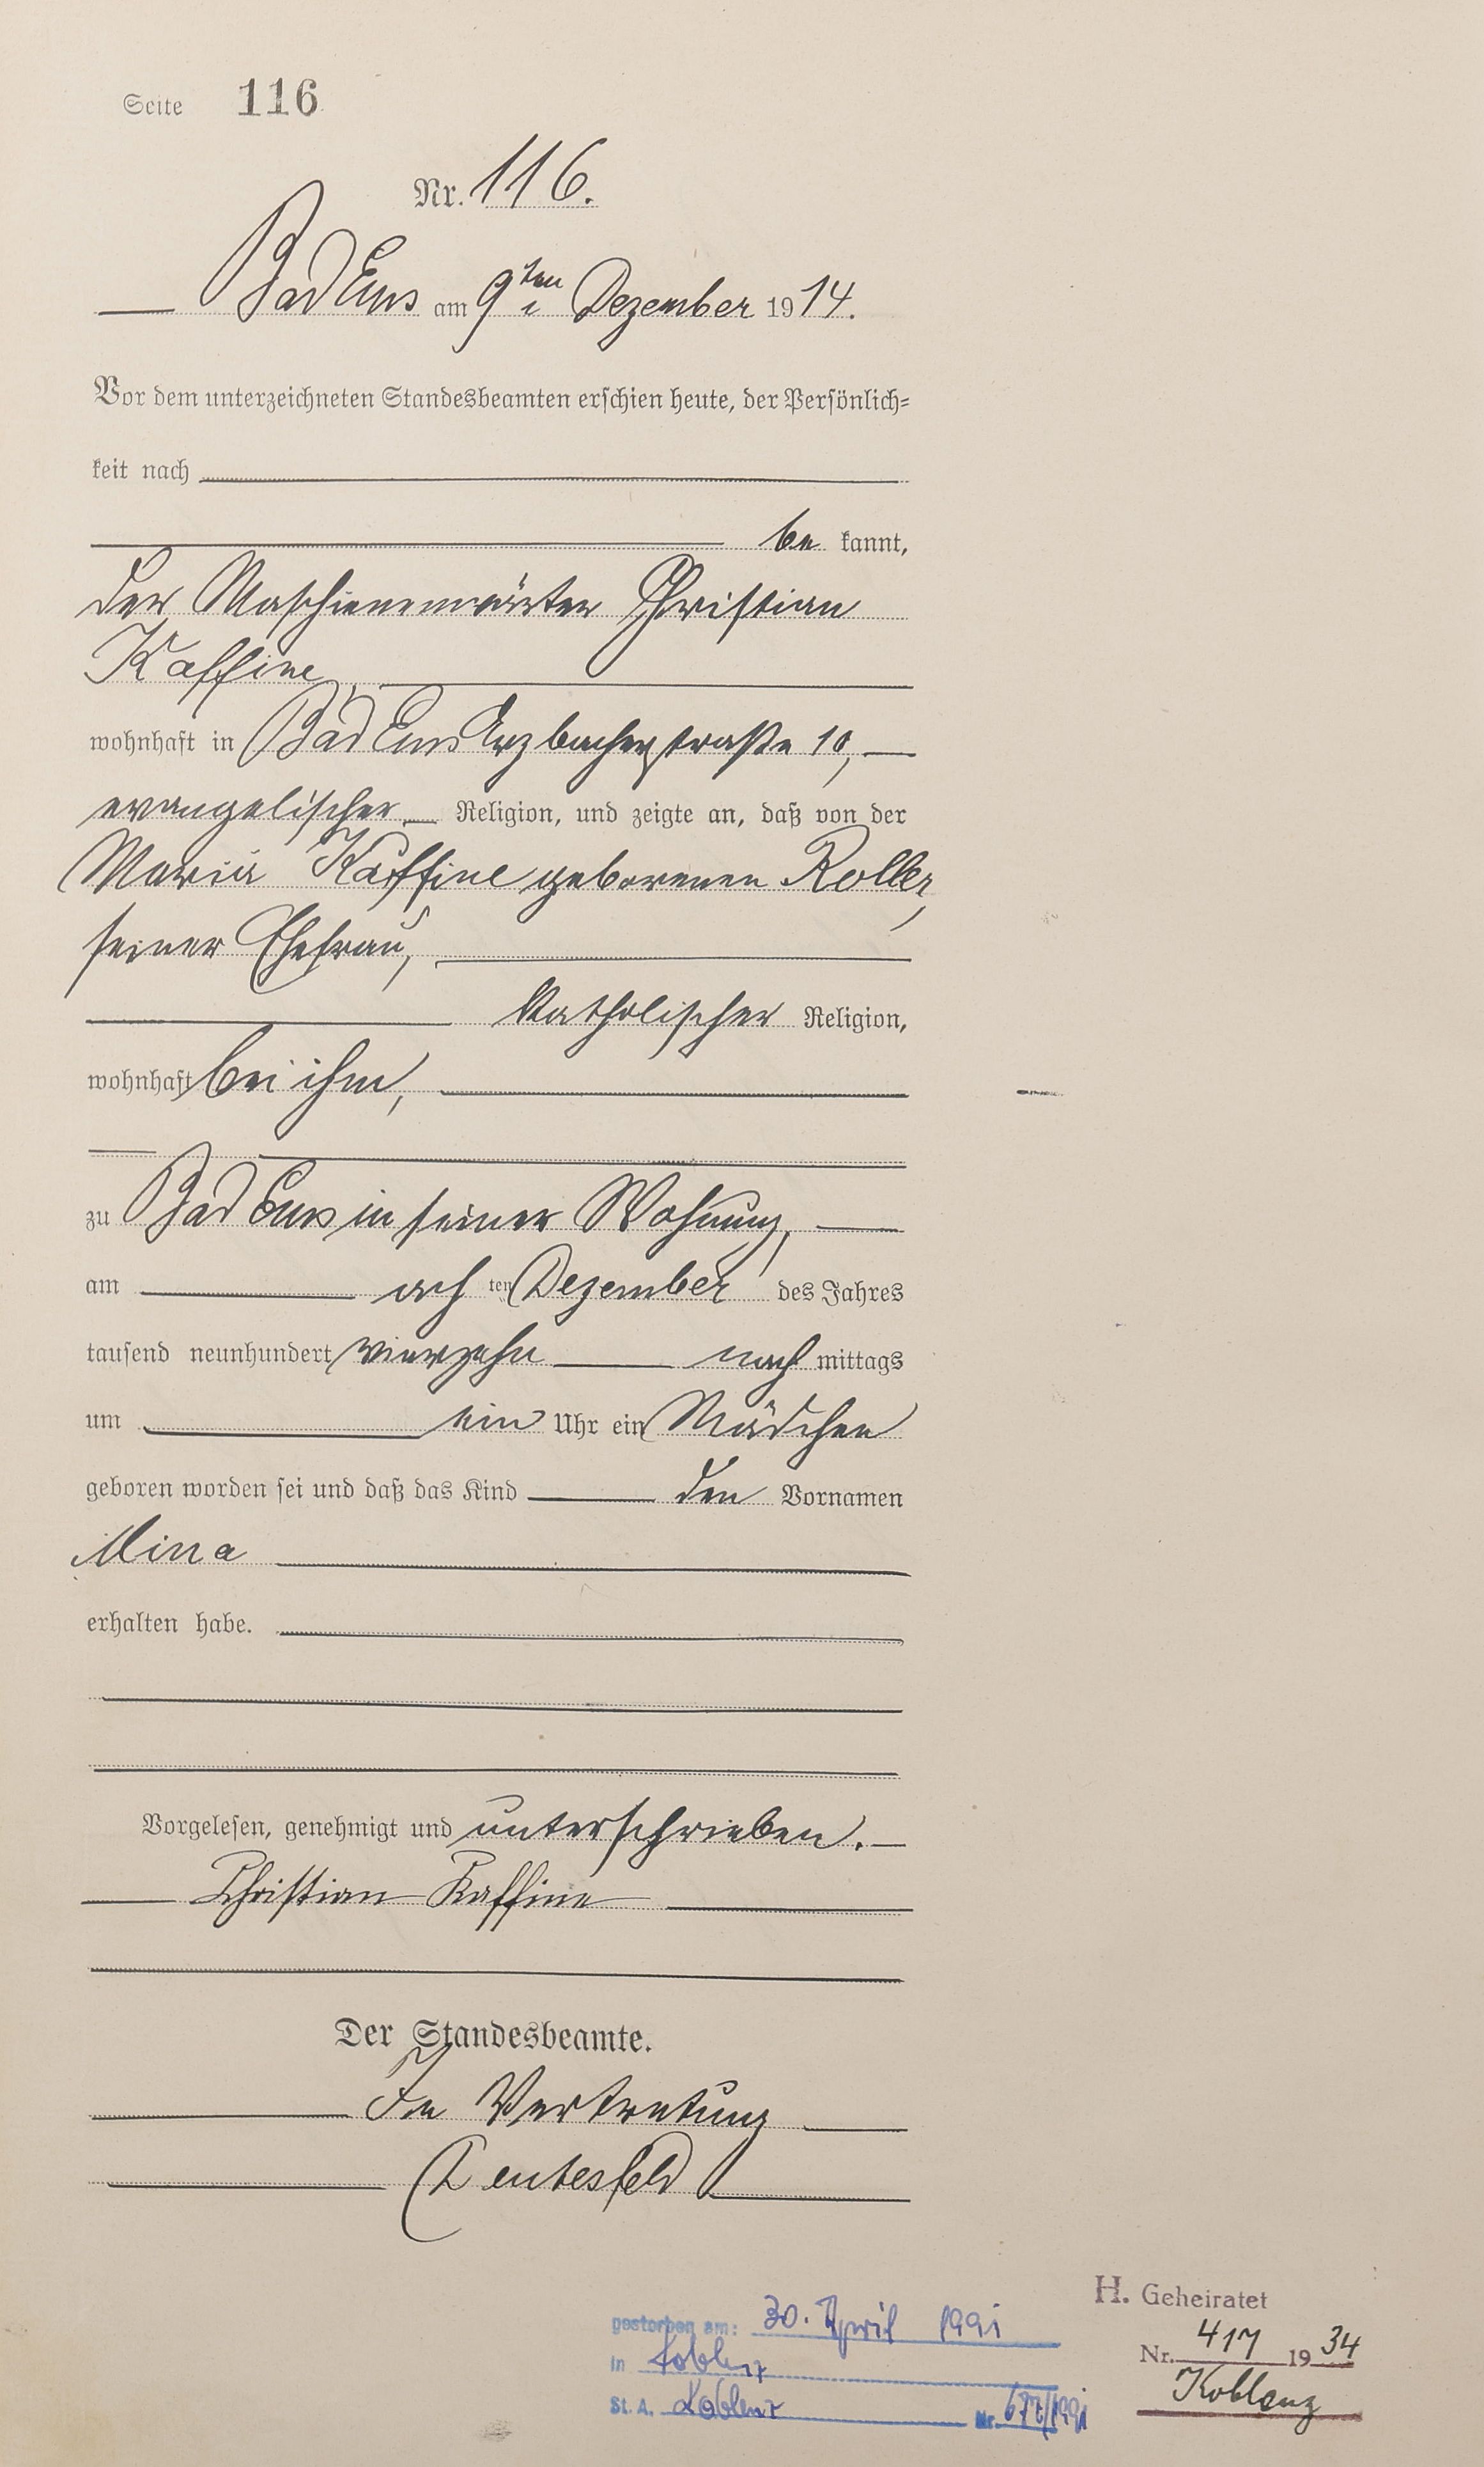 Seite 116
Nr. 116.
Bad Ems am 9ten Dezember 1914.
Vor dem unterzeichneten Standesbeamten erschien heute, der Persönlich=
keit nach
be kannt,
der Maschienenwärter Christian
Kaffine,
wohnhaft in Bad Ems Arzbacherstraße 10,
evangelischer Religion, und zeigte an, daß von der
Maria Kaffine geborenen Roller,
seiner Ehefrau,
katholischer Religion,
wohnhaft bei ihm,
zu Bad Ems in seiner Wohnung,
am ach ten Dezember des Jahres
tausend neunhundert vierzehn nach mittags
um ein Uhr ein Mädchen
geboren worden sei und daß das Kind den Vornamen
Mina
erhalten habe.
Vorgelesen, genehmigt und unterschrieben.
Christian Kaffine
Der Standesbeamte.
In Vertretung
gestorben am: 30. April 1991
in Koblenz
St. A. Koblenz Nr.
H. Geheiratet
Nr. 417 1934
Koblenz